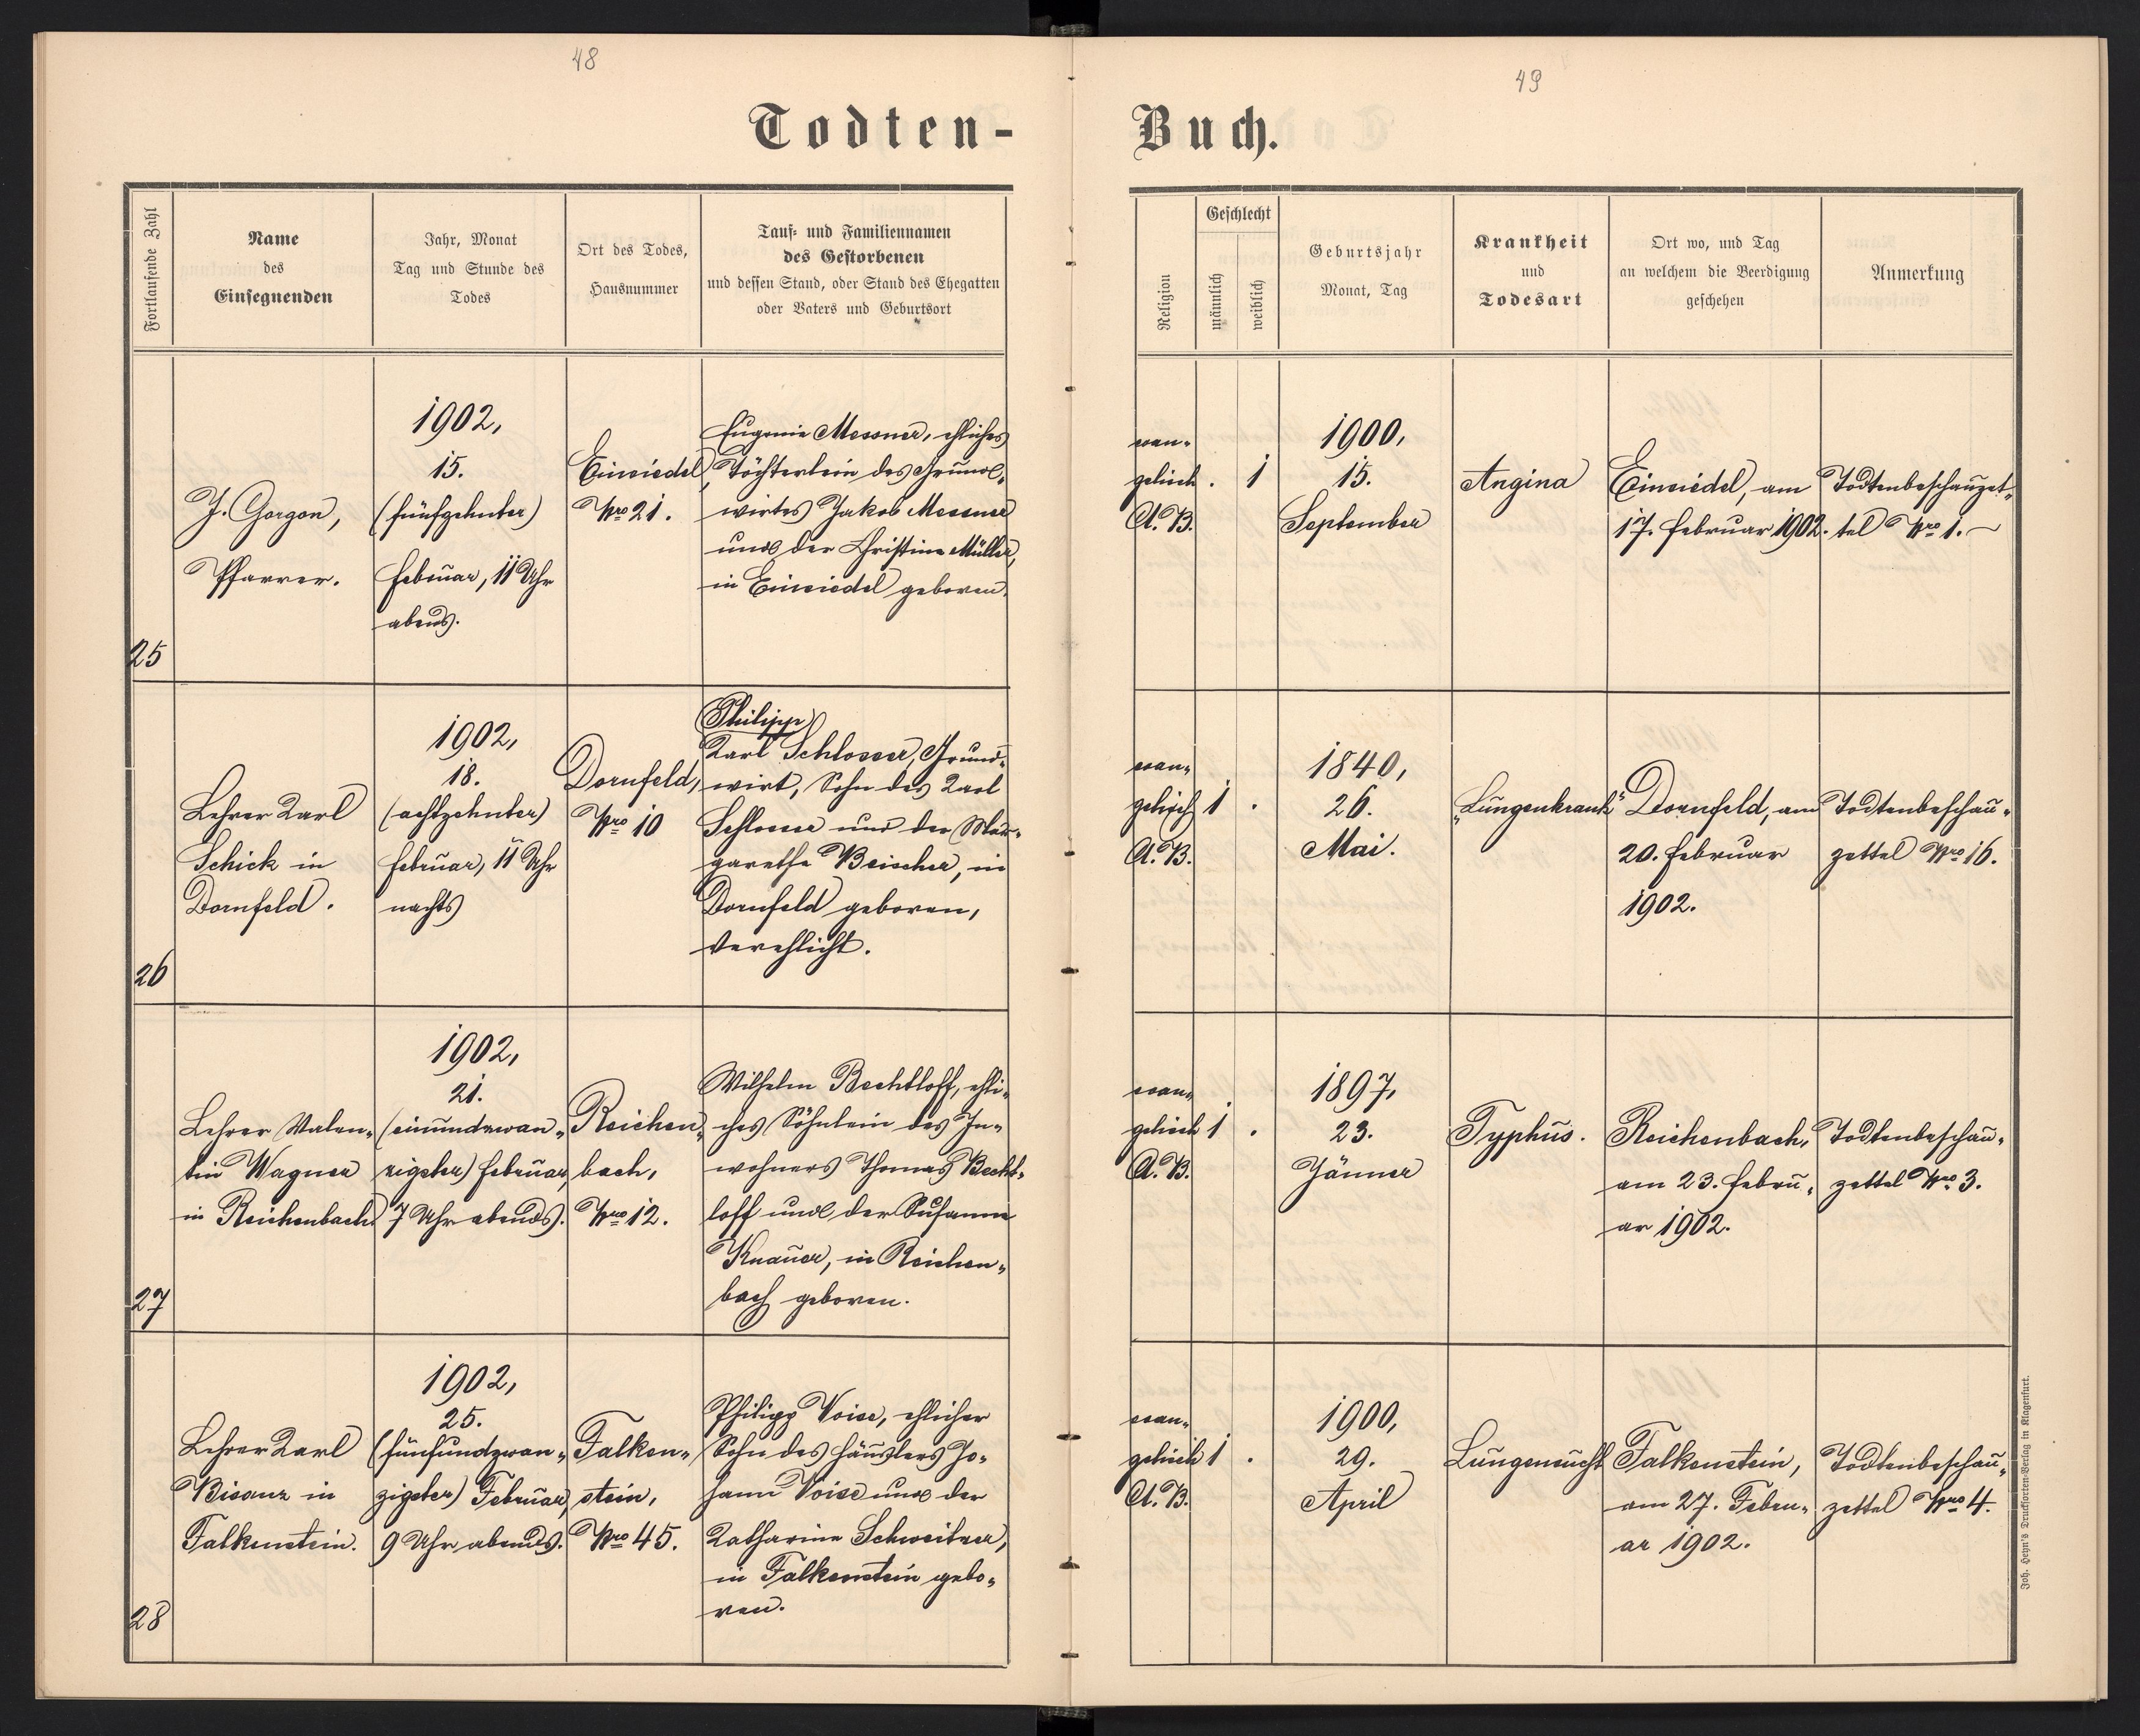 48
49
Todten-
Buch.
Fortlaufende Zahl
Name
des
Einsegnenden
Jahr, Monat
Tag und Stunde des
Todes
Ort des Todes,
Hausnummer
Tauf- und Familiennamen
des Gestorbenen
und dessen Stand, oder Stand des Ehegatten
oder Vaters und Geburtsort
Religion
Geschlecht
männlich
weiblich
Geburtsjahr
Monat, Tag
Krankheit
und
Todesart
Ort wo, und Tag
an welchem die Beerdigung
geschehen
Anmerkung
25
J. Gorgon,
Pfarrer.
1902,
15.
(fünfzehnter)
Februar, 11 Uhr
abends.
Einsiedel,
Nro 21.
Eugenie Messner, ehliches
Töchterlein des Grund-
wirtes Jakob Messner
und der Christine Müller,
in Einsiedel geboren.
evan-
gelisch
A. B.
. 1
1900,
15.
September
Angina
Einsiedel, am
17. Februar 1902.
Todtenbeschauzet-
tel Nro 1. –
26
Lehrer Karl
Schick in
Dornfeld.
1902,
18.
(achtzehnter)
Februar, 11 Uhr
nachts
Dornfeld,
Nro 10
(Philipp)
Karl Schlosser, Grund-
wirt, Sohn des Karl
Schlosser und der Mar-
garetha Beischer, in
Dornfeld geboren,
verehlicht.
evan-
gelisch
A. B.
1 .
1840,
26.
Mai.
„Lungenkrank“
Dornfeld, am
20. Februar
1902.
Todtenbeschau-
zettel Nro 16.
27
Lehrer Valen-
tin Wagner
in Reichenbach.
1902,
21.
(einundzwan-
zigster) Februar,
7 Uhr abends.
Reichen-
bach,
Nro 12.
Wilhelm Bechtloff, ehli-
ches Söhnlein des In-
wohners Thomas Becht-
loff und der Susanne
Knauer, in Reichen-
bach geboren.
evan-
gelisch
A. B.
1 .
1897,
23.
Jänner
Typhus.
Reichenbach,
am 23. Febru-
ar 1902.
Todtenbeschau-
zettel Nro 3.
28
Lehrer Karl
Bisanz in
Falkenstein.
1902,
25.
(fünfundzwan-
zigster) Februar,
9 Uhr abends.
Falken-
stein,
Nro 45.
Philipp Voise, ehlicher
Sohn des Häuslers Jo-
hann Voise und der
Katharine Schweitzer,
in Falkenstein gebo-
ren.
evan-
gelisch
A. B.
1 .
1900,
29.
April
Lungensucht
Falkenstein,
am 27. Febru-
ar 1902.
Todtenbeschau-
zettel Nro 4.
Joh. Heyn's Drucksorten-Verlag in Klagenfurt.